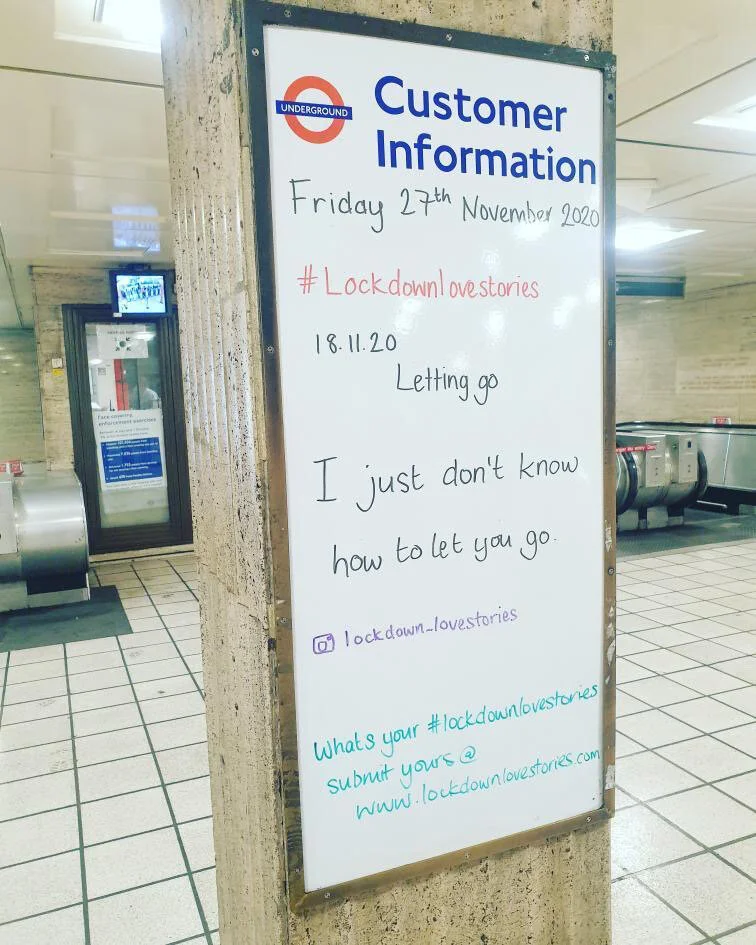 UNDERGROUND
Customer
Information
Friday 27th November 2020
#Lockdownlovestories
18.11.20
Letting go
I just don't know
how to let you go.
lockdown_lovestories
Whats your #lockdownlovestories
submit yours @
www.lockdownlovestories.com
Face covering
enforcement exercises